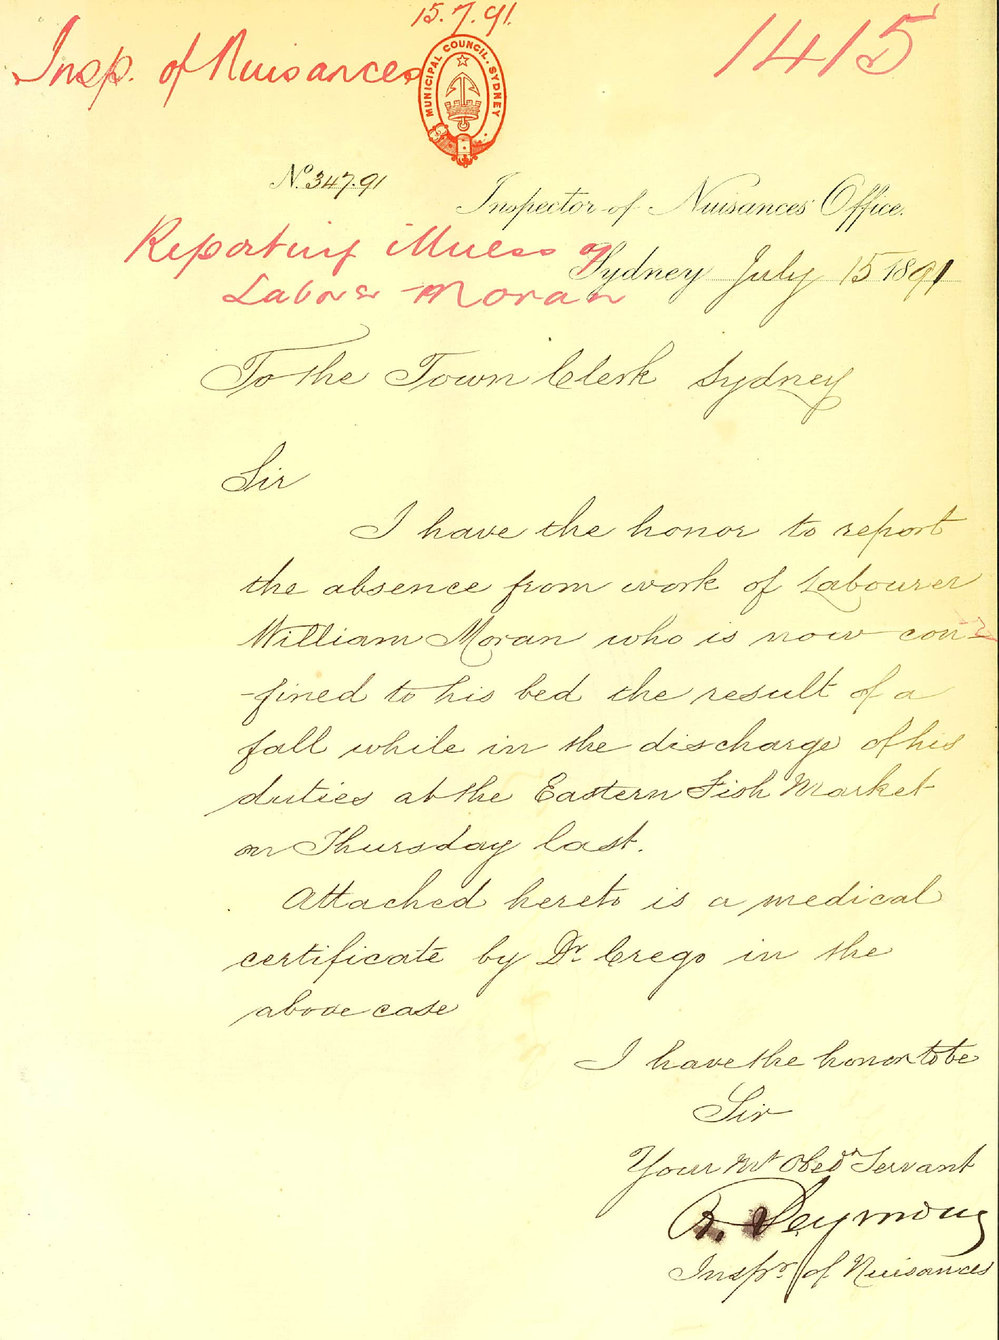 15.7.91.
Insp. of Nuisances
1415
MUNICIPAL COUNCIL · SYDNEY
No. 347.91
Inspector of Nuisances Office.
Reporting illness of
Sydney July 15 1891
Labor Moran
To the Town Clerk Sydney
Sir
I have the honor to report
the absence from work of Labourer
William Moran who is now con-
-fined to his bed the result of a
fall while in the discharge of his
duties at the Eastern Fish Market
on Thursday last.
Attached hereto is a medical
certificate by Dr. Crego in the
above case
I have the honor to be
Sir
Your Mt Obedn Servant
R. Seymour
Inspr. of Nuisances